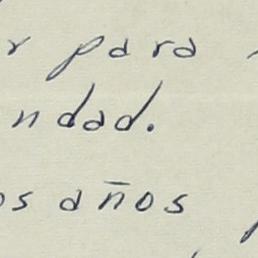 r para
ndad.
os años